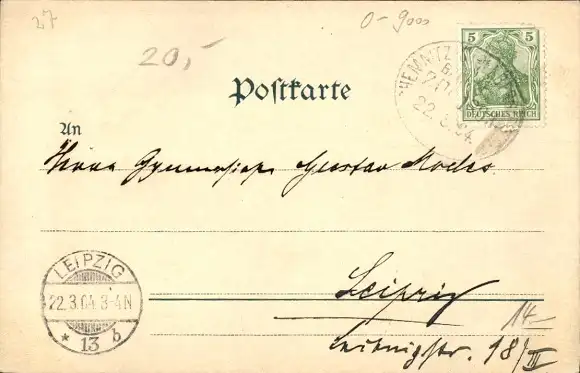 27
0-9000
20,-
5 5
DEUTSCHES REICH
CHEMNITZ
22.3.04
Postkarte
An
Herrn Gymnasiast Gustav Modes
LEIPZIG
22.3.04.3-4N
* 13 b
Leipzig
14
18/III